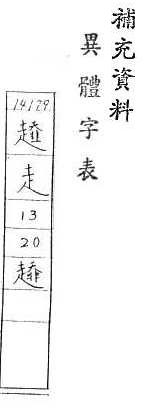 補充資料
異體字表
14129
走
13
20